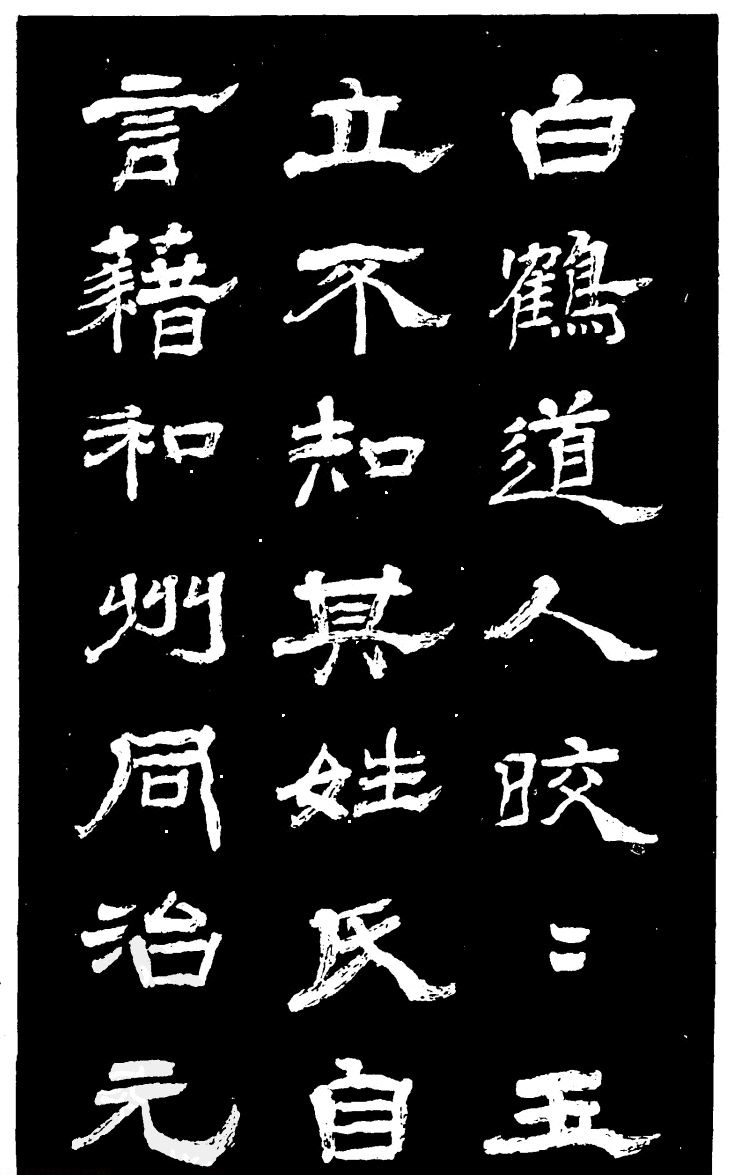 白鶴道人晈〻玉
立不知其姓氏自
言藉和州同治元